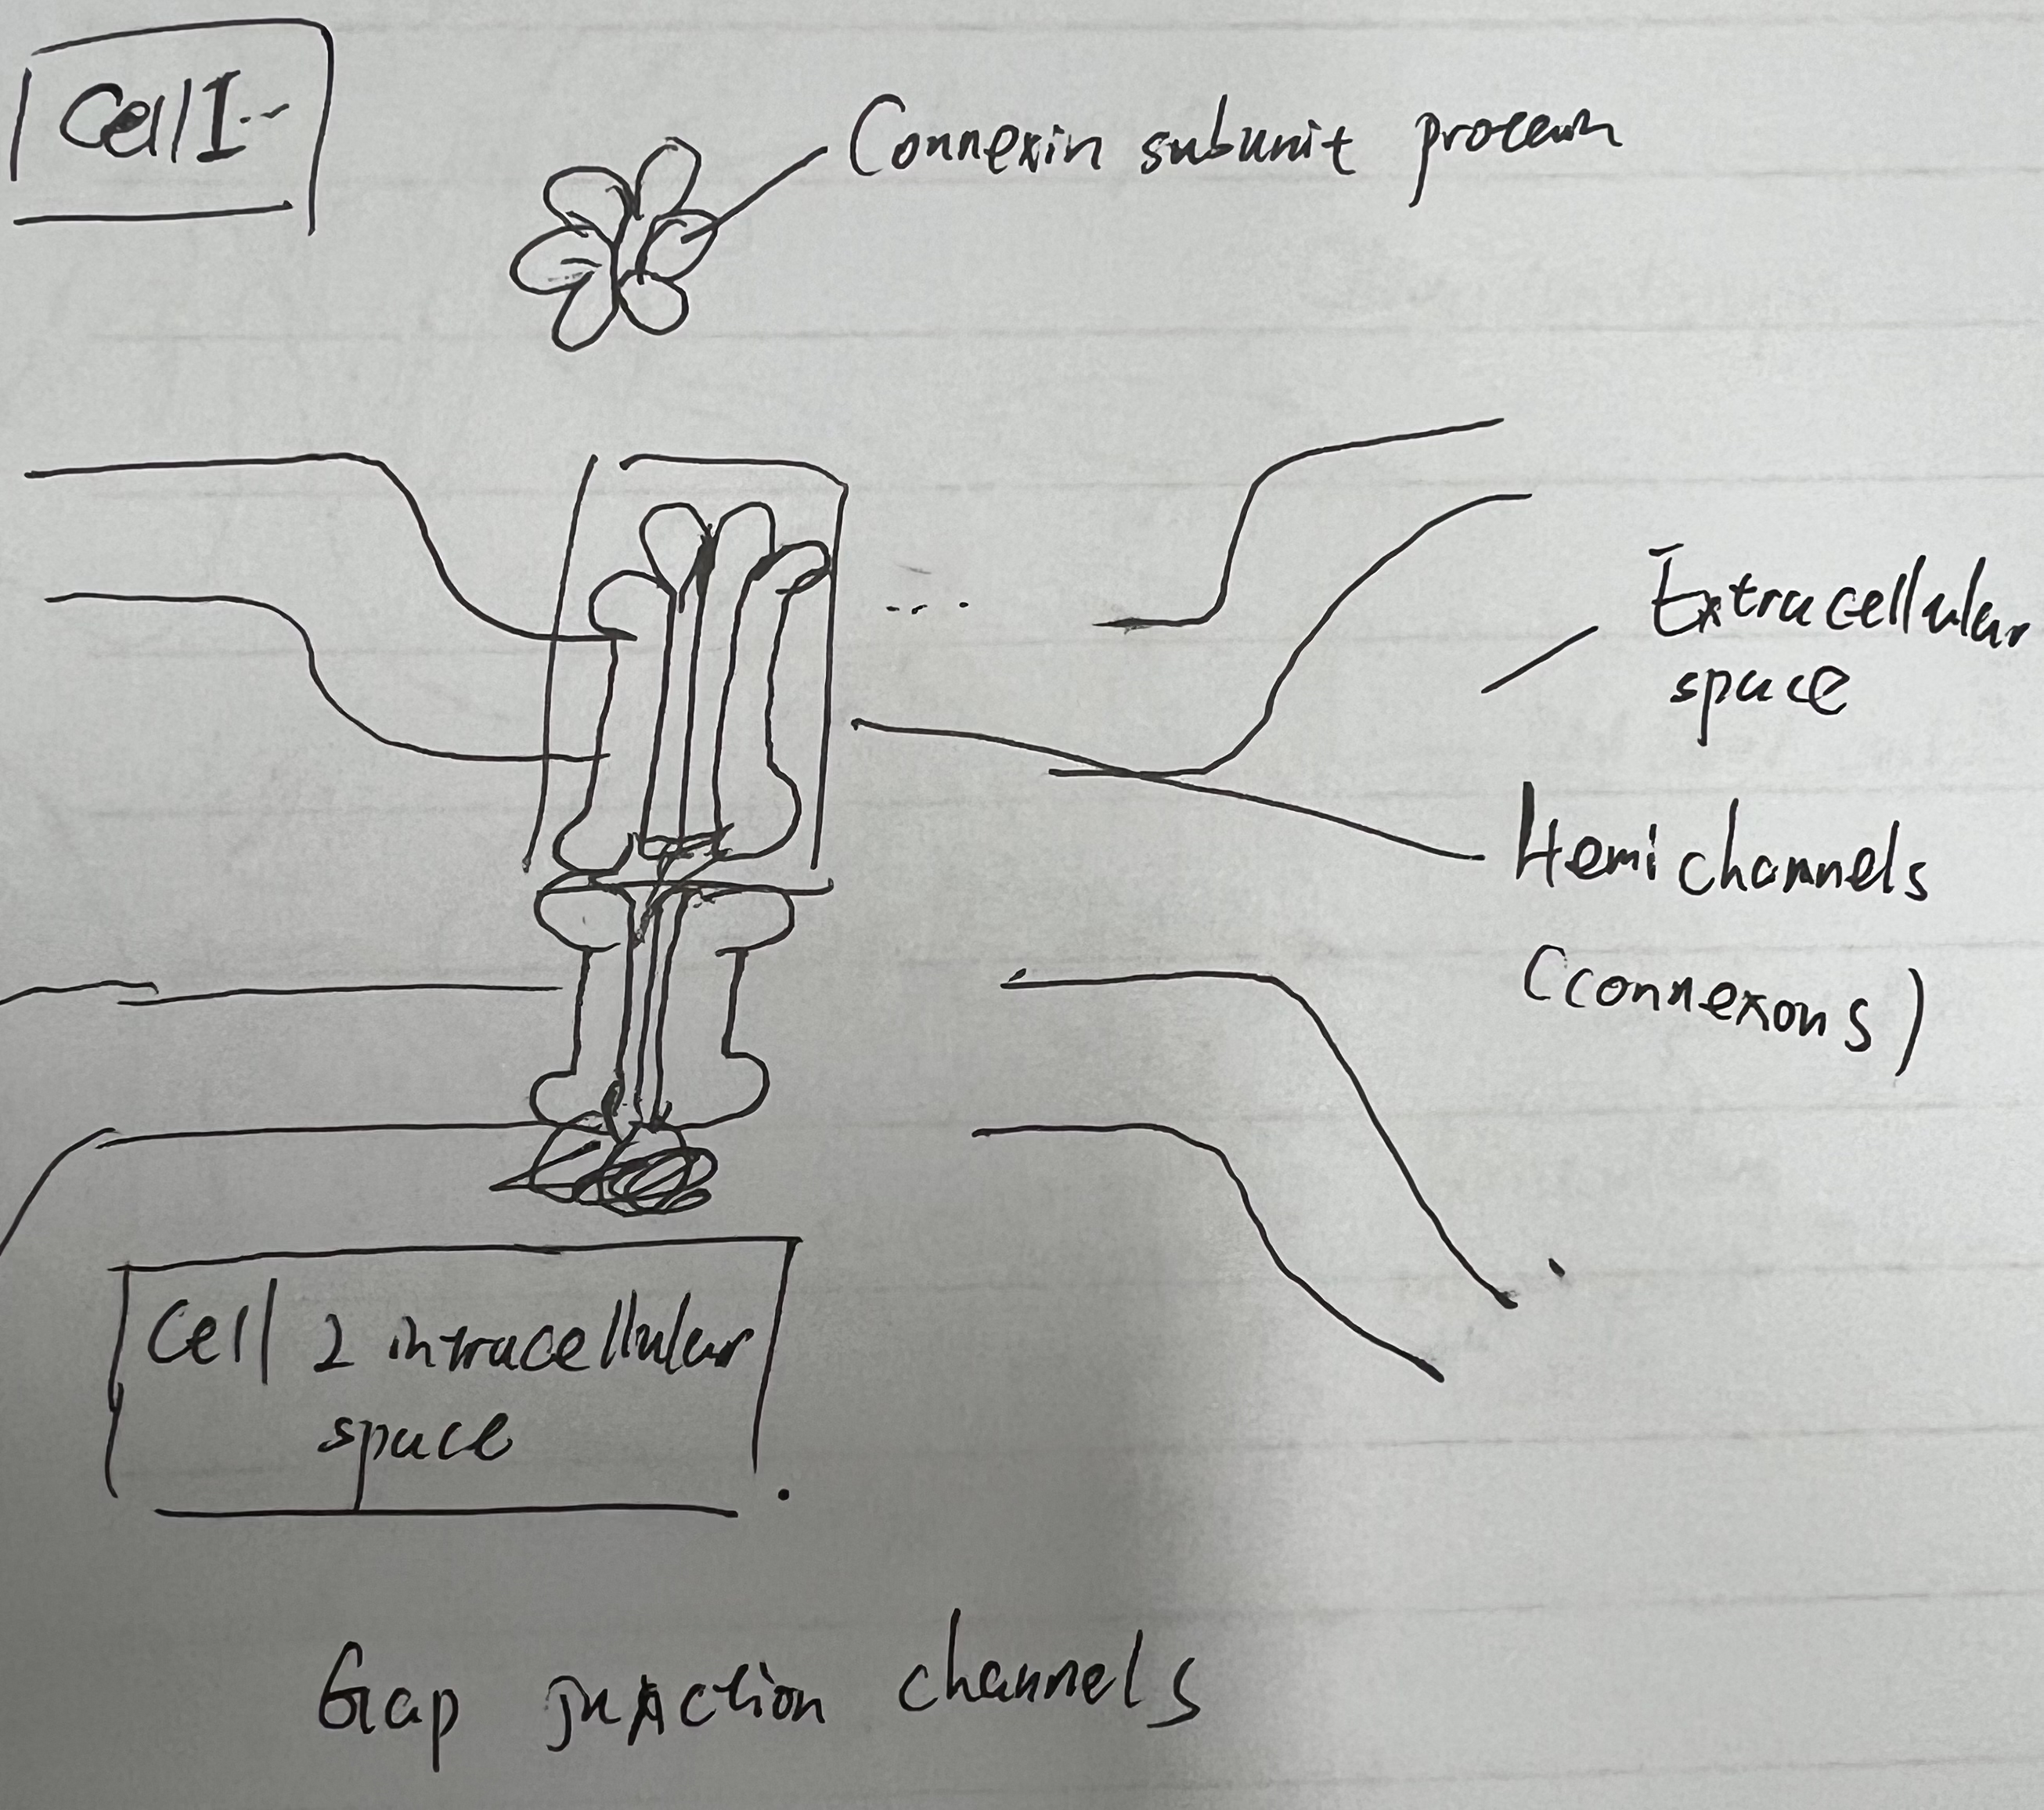 Cell I
Connexin subunit protein
Extracellular
space
Hemichannels
(connexons)
Cell 2 intracellular
space
Gap junction channels